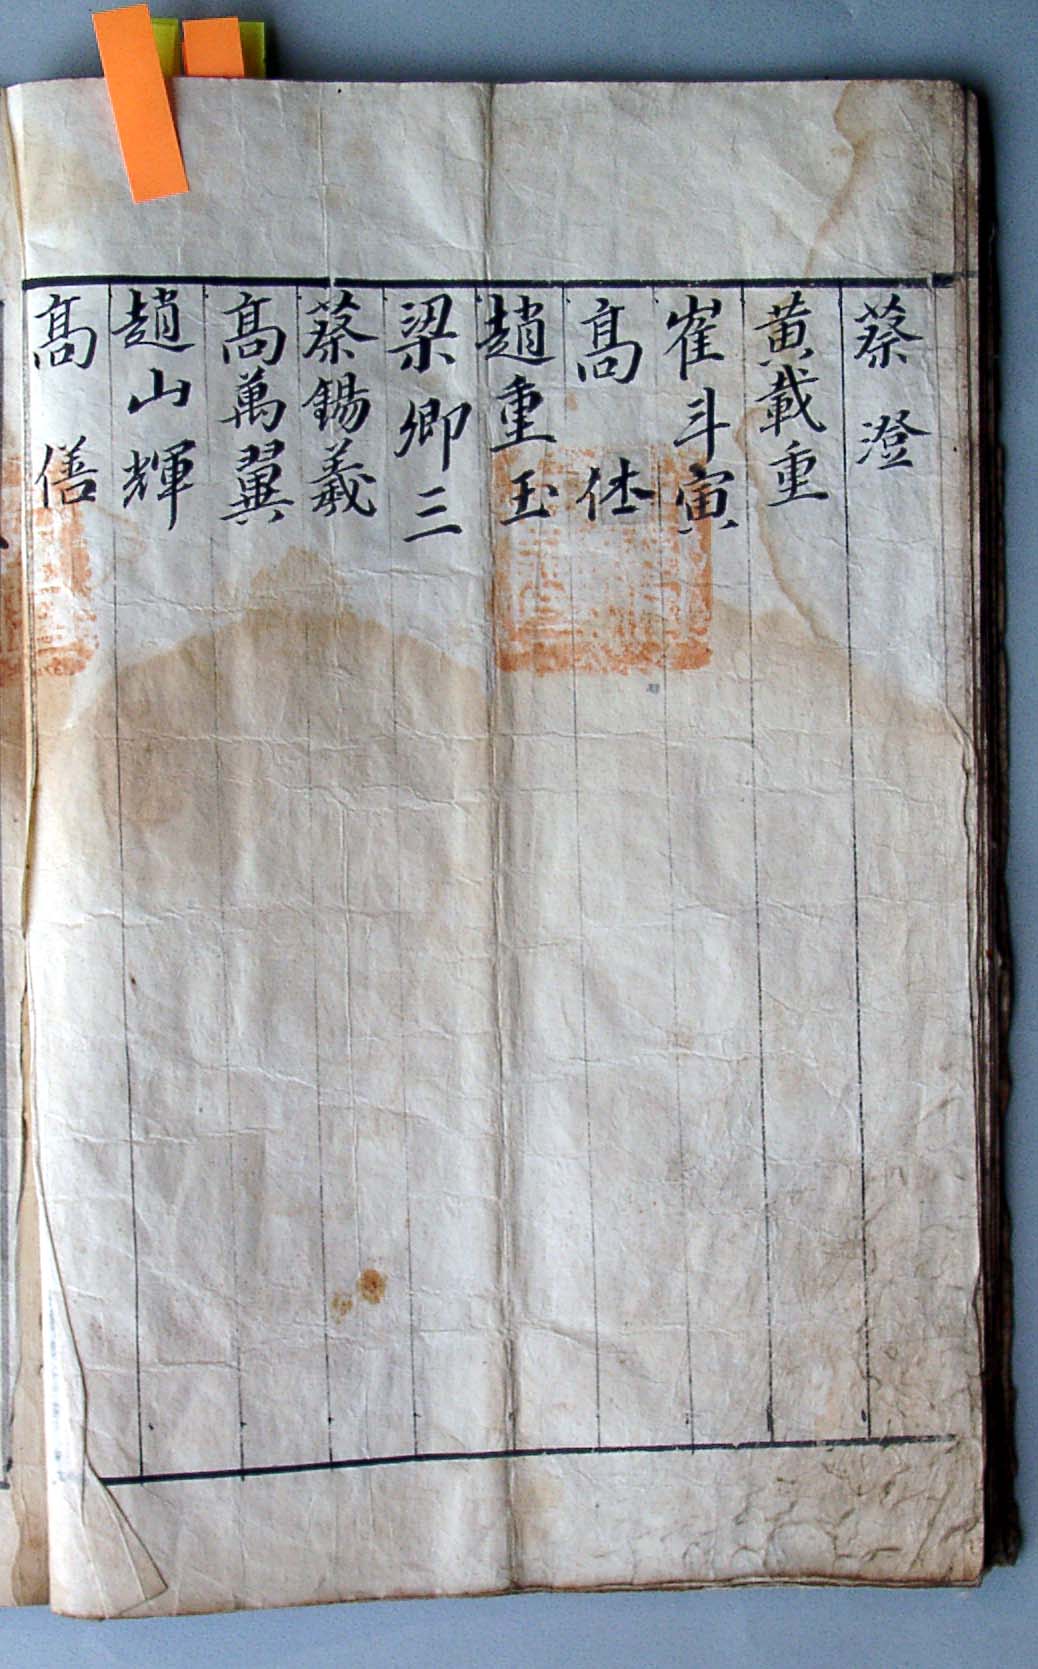 蔡澄
黃載重
崔斗寅
髙
趙重玉
梁卿三
蔡錫羲
髙萬翼
趙山輝
髙僐